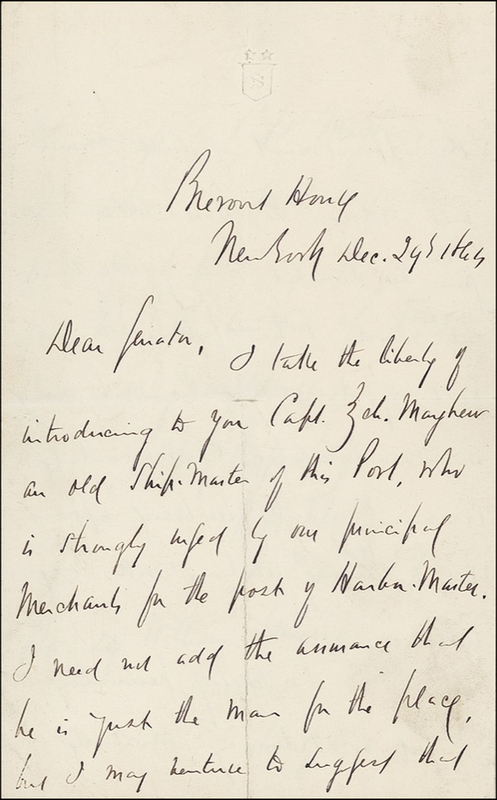 Brevoort House
New York Dec. 29th 1864
Dear Senator,
I take the liberty of
introducing to you Capt. Zch. Mayhew
an old Ship-Master of this Port, who
is strongly urged by our principal
Merchants for the post of Harbor-Master.
I need not add the assurance that
he is just the man for the place,
but I may venture to suggest that